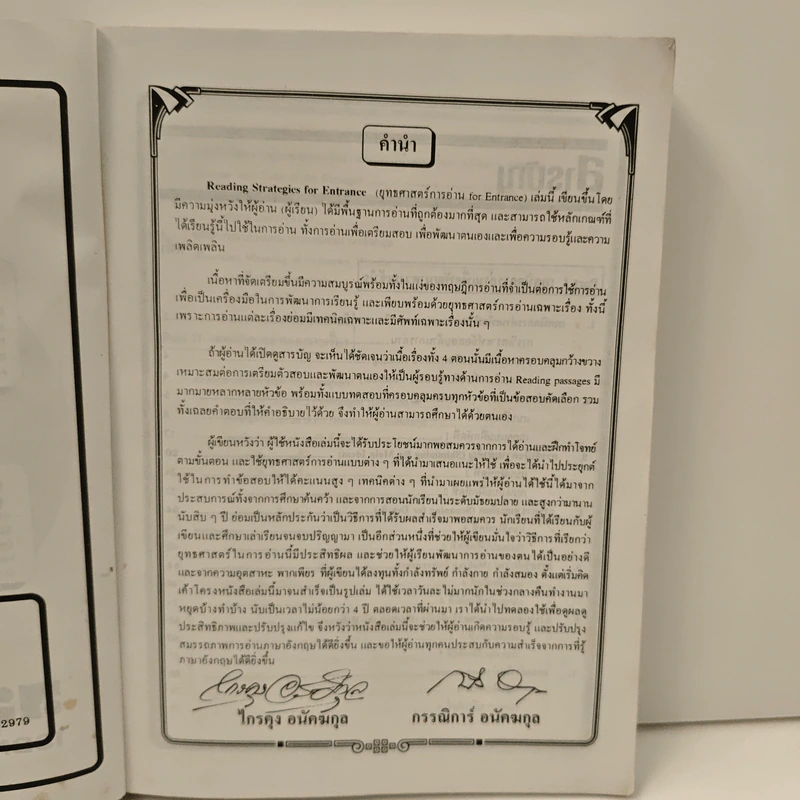 คำนำ
Reading Strategies for Entrance (ยุทธศาสตร์การอ่าน for Entrance) เล่มนี้ เขียนขึ้นโดย
มีความมุ่งหวังให้ผู้อ่าน (ผู้เรียน) ได้มีพื้นฐานการอ่านที่ถูกต้องมากที่สุด และสามารถใช้หลักเกณฑ์ที่
ได้เรียนรู้นี้ไปใช้ในการอ่าน ทั้งการอ่านเพื่อเตรียมสอบ เพื่อพัฒนาตนเองและเพื่อความรอบรู้และความ
เพลิดเพลิน
เนื้อหาที่จัดเตรียมขึ้นมีความสมบูรณ์พร้อมทั้งในแง่ของทฤษฎีการอ่านที่จำเป็นต่อการใช้การอ่าน
เพื่อเป็นเครื่องมือในการพัฒนาการเรียนรู้ และเพียบพร้อมด้วยยุทธศาสตร์การอ่านเฉพาะเรื่อง ทั้งนี้
เพราะการอ่านแต่ละเรื่องย่อมมีเทคนิคเฉพาะและมีศัพท์เฉพาะเรื่องนั้น ๆ
ถ้าผู้อ่านได้เปิดดูสารบัญ จะเห็นได้ชัดเจนว่าเนื้อเรื่องทั้ง 4 ตอนนั้นมีเนื้อหาครอบคลุมกว้างขวาง
เหมาะสมต่อการเตรียมตัวสอบและพัฒนาตนเองให้เป็นผู้รอบรู้ทางด้านการอ่าน Reading passages มี
มากมายหลากหลายหัวข้อ พร้อมทั้งแบบทดสอบที่ครอบคลุมครบทุกหัวข้อที่เป็นข้อสอบคัดเลือก รวม
ทั้งเฉลยคำตอบที่ให้คำอธิบายไว้ด้วย จึงทำให้ผู้อ่านสามารถศึกษาได้ด้วยตนเอง
ผู้เขียนหวังว่า ผู้ใช้หนังสือเล่มนี้จะได้รับประโยชน์มากพอสมควรจากการได้อ่านและฝึกทำโจทย์
ตามขั้นตอน และใช้ยุทธศาสตร์การอ่านแบบต่าง ๆ ที่ได้นำมาเสนอแนะให้ใช้ เพื่อจะได้นำไปประยุกต์
ใช้ในการทำข้อสอบให้ได้คะแนนสูง ๆ เทคนิคต่าง ๆ ที่นำมาเผยแพร่ให้ผู้อ่านได้ใช้นี้ได้มาจาก
ประสบการณ์ทั้งจากการศึกษาค้นคว้า และจากการสอนนักเรียนในระดับมัธยมปลาย และสูงกว่ามานาน
นับสิบ ๆ ปี ย่อมเป็นหลักประกันว่าเป็นวิธีการที่ได้รับผลสำเร็จมาพอสมควร นักเรียนที่ได้เรียนกับผู้
เขียนและศึกษาเล่าเรียนจนจบปริญญามา เป็นอีกส่วนหนึ่งที่ช่วยให้ผู้เขียนมั่นใจว่าวิธีการที่เรียกว่า
ยุทธศาสตร์ในการอ่านนี้มีประสิทธิผล และช่วยให้ผู้เรียนพัฒนาการอ่านของตนได้เป็นอย่างดี
และจากความอุตสาหะ พากเพียร ที่ผู้เขียนได้ลงทุนทั้งกำลังทรัพย์ กำลังกาย กำลังสมอง ตั้งแต่เริ่มคิด
เค้าโครงหนังสือเล่มนี้มาจนสำเร็จเป็นรูปเล่ม ได้ใช้เวลาวันละไม่มากนักในช่วงกลางคืนทำงานมา
หยุดบ้างทำบ้าง นับเป็นเวลาไม่น้อยกว่า 4 ปี ตลอดเวลาที่ผ่านมา เราได้นำไปทดลองใช้เพื่อดูผลดู
ประสิทธิภาพและปรับปรุงแก้ไข จึงหวังว่าหนังสือเล่มนี้จะช่วยให้ผู้อ่านเกิดความรอบรู้ และปรับปรุง
สมรรถภาพการอ่านภาษาอังกฤษได้ดียิ่งขึ้น และขอให้ผู้อ่านทุกคนประสบกับความสำเร็จจากการที่รู้
ภาษาอังกฤษได้ดียิ่งขึ้น
ไกรคุง อนัคฆกุล
กรรณิการ์ อนัคฆกุล
2979